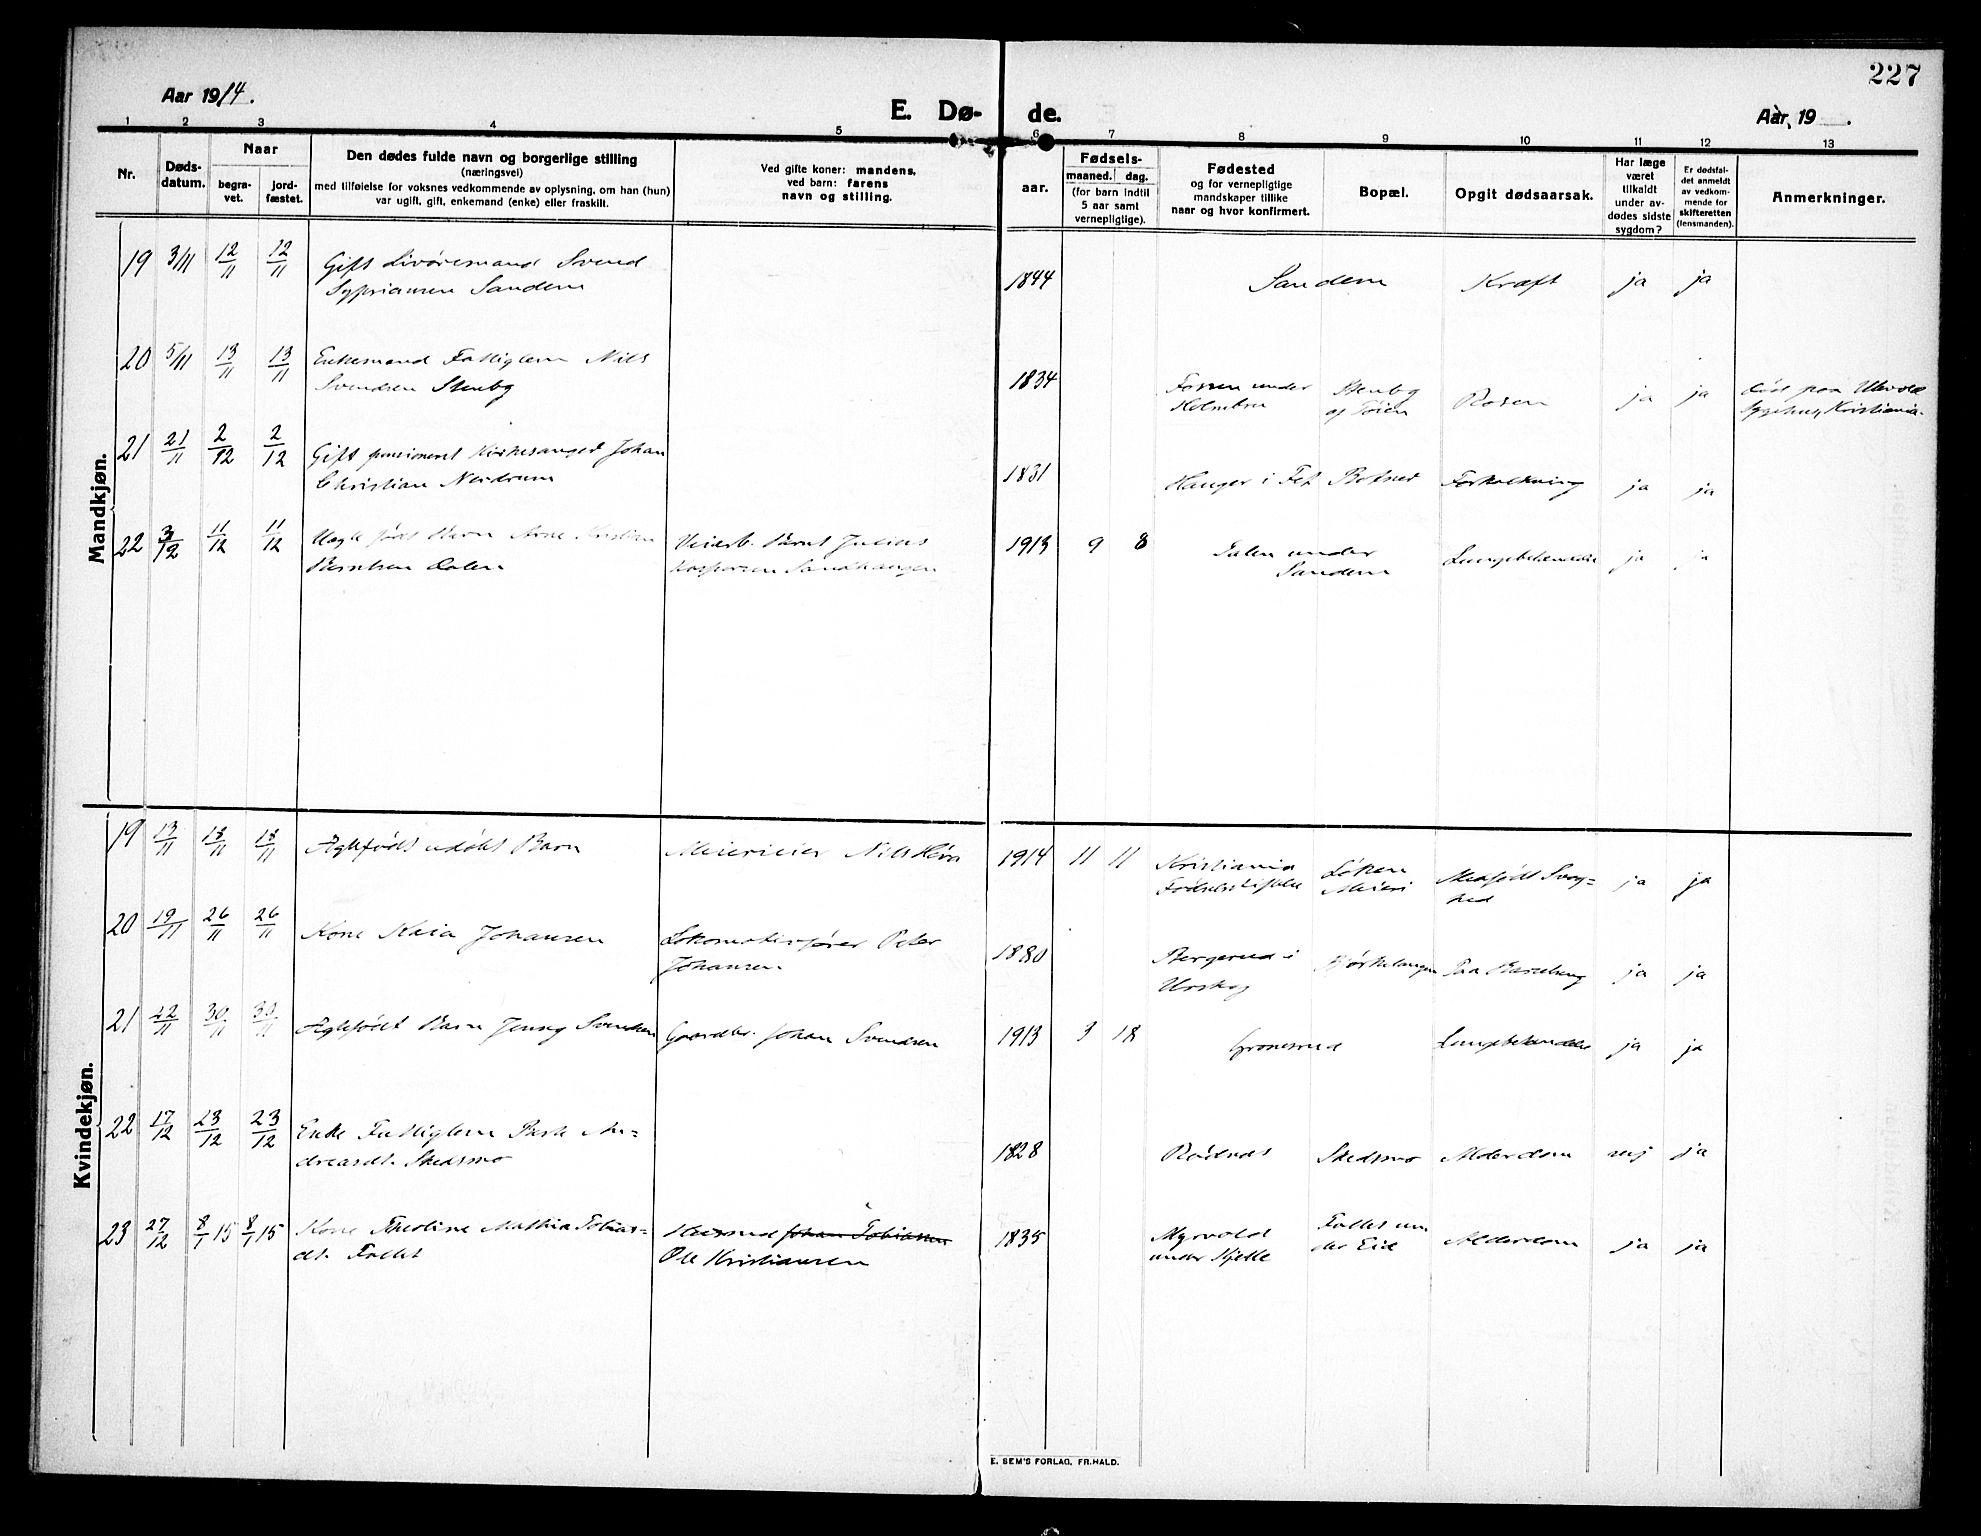 227
Aar 1914.
E. Dø- de.
Aar, 19 .
1 2 3 4 5 6 7 8 9 10 11 12 13
Nr.
Døds-
datum.
Naar
begra-
vet.
jord-
fæstet.
Den dødes fulde navn og borgerlige stilling
(næringsvei)
med tilføielse for voksnes vedkommende av oplysning, om han (hun)
var ugift, gift, enkemand (enke) eller fraskilt.
Ved gifte koner: mandens,
ved barn: farens
navn og stilling.
Fødsels-
aar.
maaned. dag.
(for barn indtil
5 aar samt
vernepligtige).
Fødested
og for vernepligtige
mandskaper tillike
naar og hvor konfirmert.
Bopæl.
Opgit dødsaarsak.
Har læge
været
tilkaldt
under av-
dødes sidste
sygdom?
Er dødsfal-
det anmeldt
av vedkom-
mende for
skifteretten
(lensmanden).
Anmerkninger.
Mandkjøn.
19 3/11 12/11 12/11 Gift Livøresmand Svend
Sypriansen Sandem
1844 Sandem Kræft ja ja
20 5/11 13/11 13/11 Enkemand Fattiglem Nils
Svendsen Stenby
1834 Fossen under
Holmbru
Stenby
og Töien
Rosen ja ja
Död paa Ullevold
Sygehus, Kristiania.
21 21/11 2/12 2/12 Gift pensioneret Kirkesanger Johan
Christian Nerdrum
1831 Hauger i Fet Botner Forkalkning ja ja
22 3/12 11/12 11/12 Uegte födt Barn Arne Kristian
Berntsen Dalen
Veiarb. Bernt Julius
Kaspersen Sandhaugen
1913 9 8 Dalen under
Sandem
Lungebetændelse ja ja
Kvindekjøn.
19 13/11 18/11 18/11 Ægtefödt udöbt Barn
Meierieier Nils
1914 11 11 Kristiania
Fødselsstiftelse
Löken
Meieri
Medfödt Svag-
hed
ja ja
20 19/11 26/11 26/11 Kone Kaia Johansen
Lokomotivförer Peter
Johansen
1880 Bergerud i
Urskog
Bjørkelangen Paa Barselseng ja ja
21 22/11 30/11 30/11 Ægtefödt Barn Jenny Svendsen
Gaardbr. Johan Svendsen
1913 3 18 Gronesrud Lungebetændelse ja ja
22 17/12 23/12 23/12 Enke Fattiglem Berte An-
dreasdt. Skedsmo
1828 Rödenes Skedsmo Alderdom nej ja
23 27/12 8/1 15 8/1 15 Kone Theoline Mathia Tobias-
dt. Fallet
Husmand Johan Tobiassen
Ole Kristiansen
1835 Myrvold
under Kjelle
Fallet un-
der Eid
Alderdom ja ja
E. SEM'S FORLAG, FR.HALD.